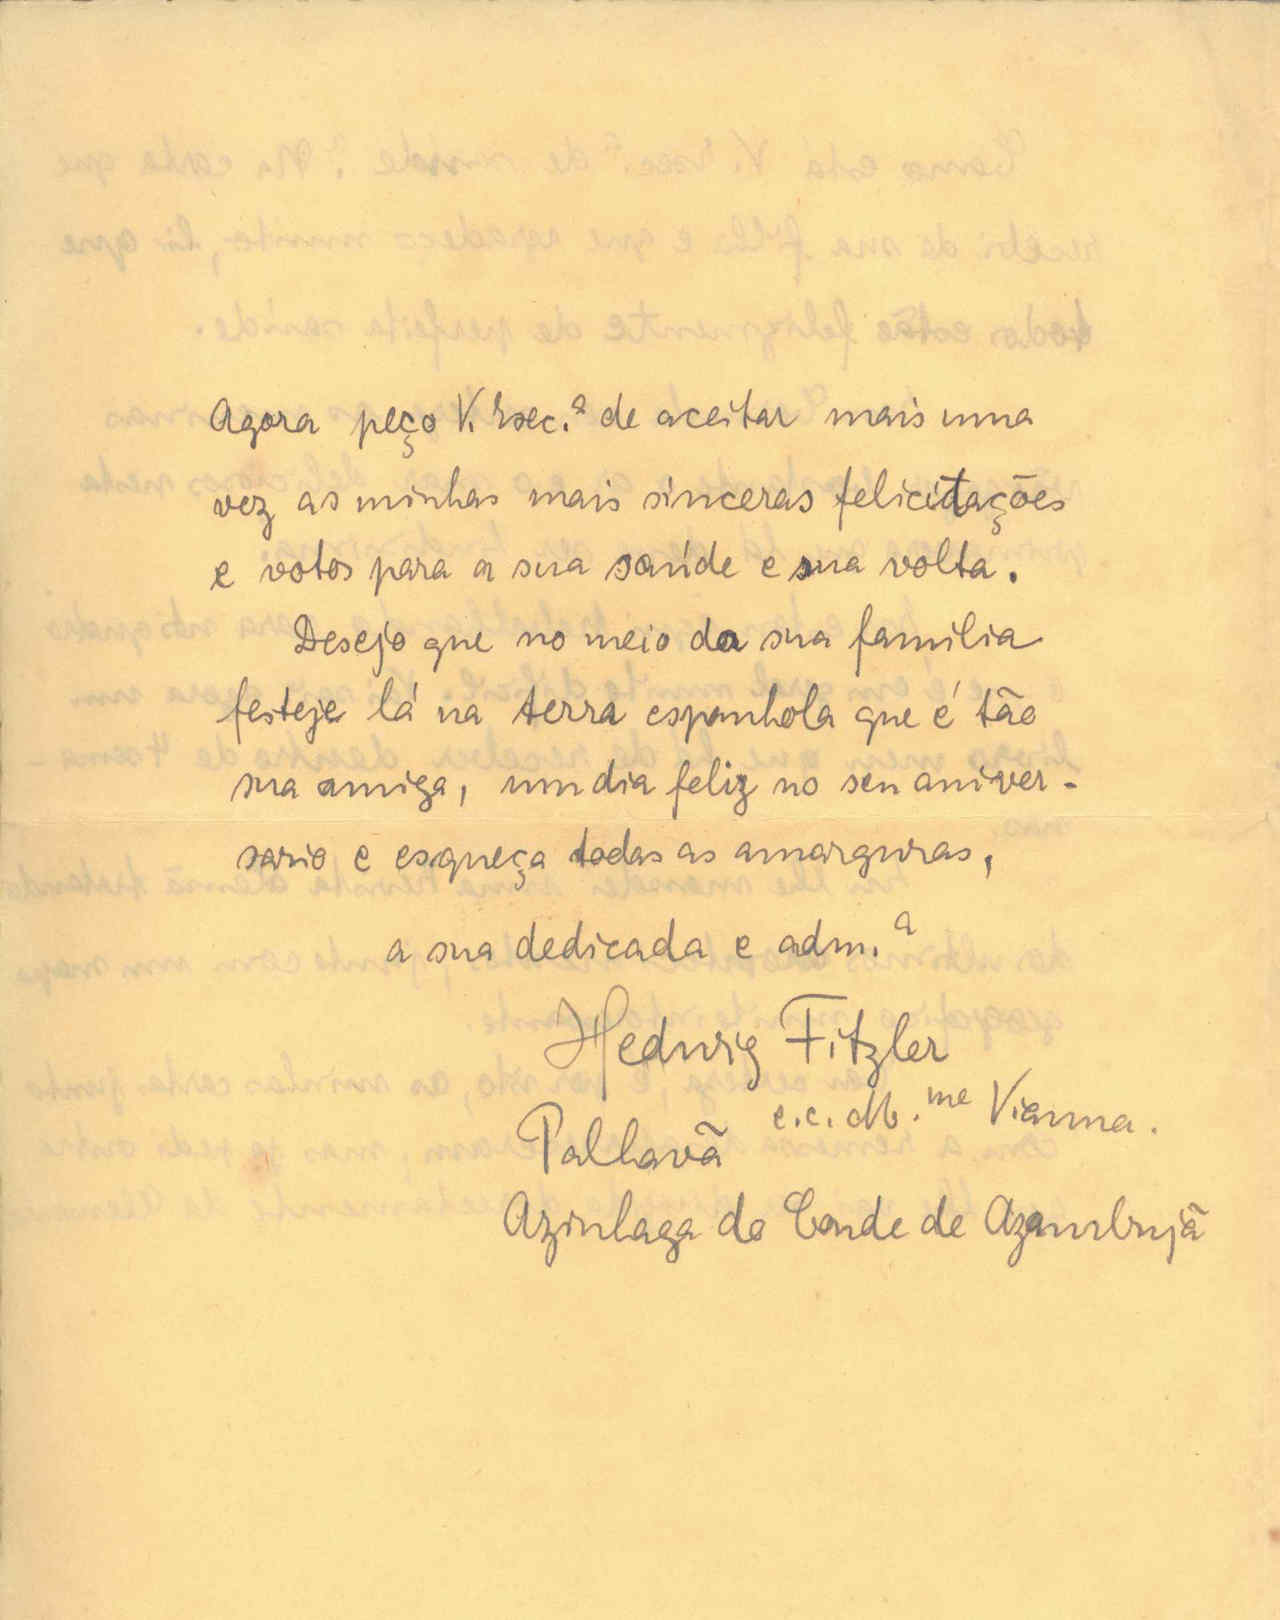 Agora peço V. Exec.ª de aceitar mais uma
vez as minhas mais sinceras felicitações
e votos para a sua saúde e sua volta.
Desejo que no meio da sua familia
festeje lá na terra espanhola que é tão
sua amiga, um dia feliz no seu aniver-
sario e esqueça todas as amarguras,
a sua dedicada e adm.ª
Hedwig Fitzler
e.c. M.me Vianna.
Palhavã
Azinhaga do Conde de Azambujã